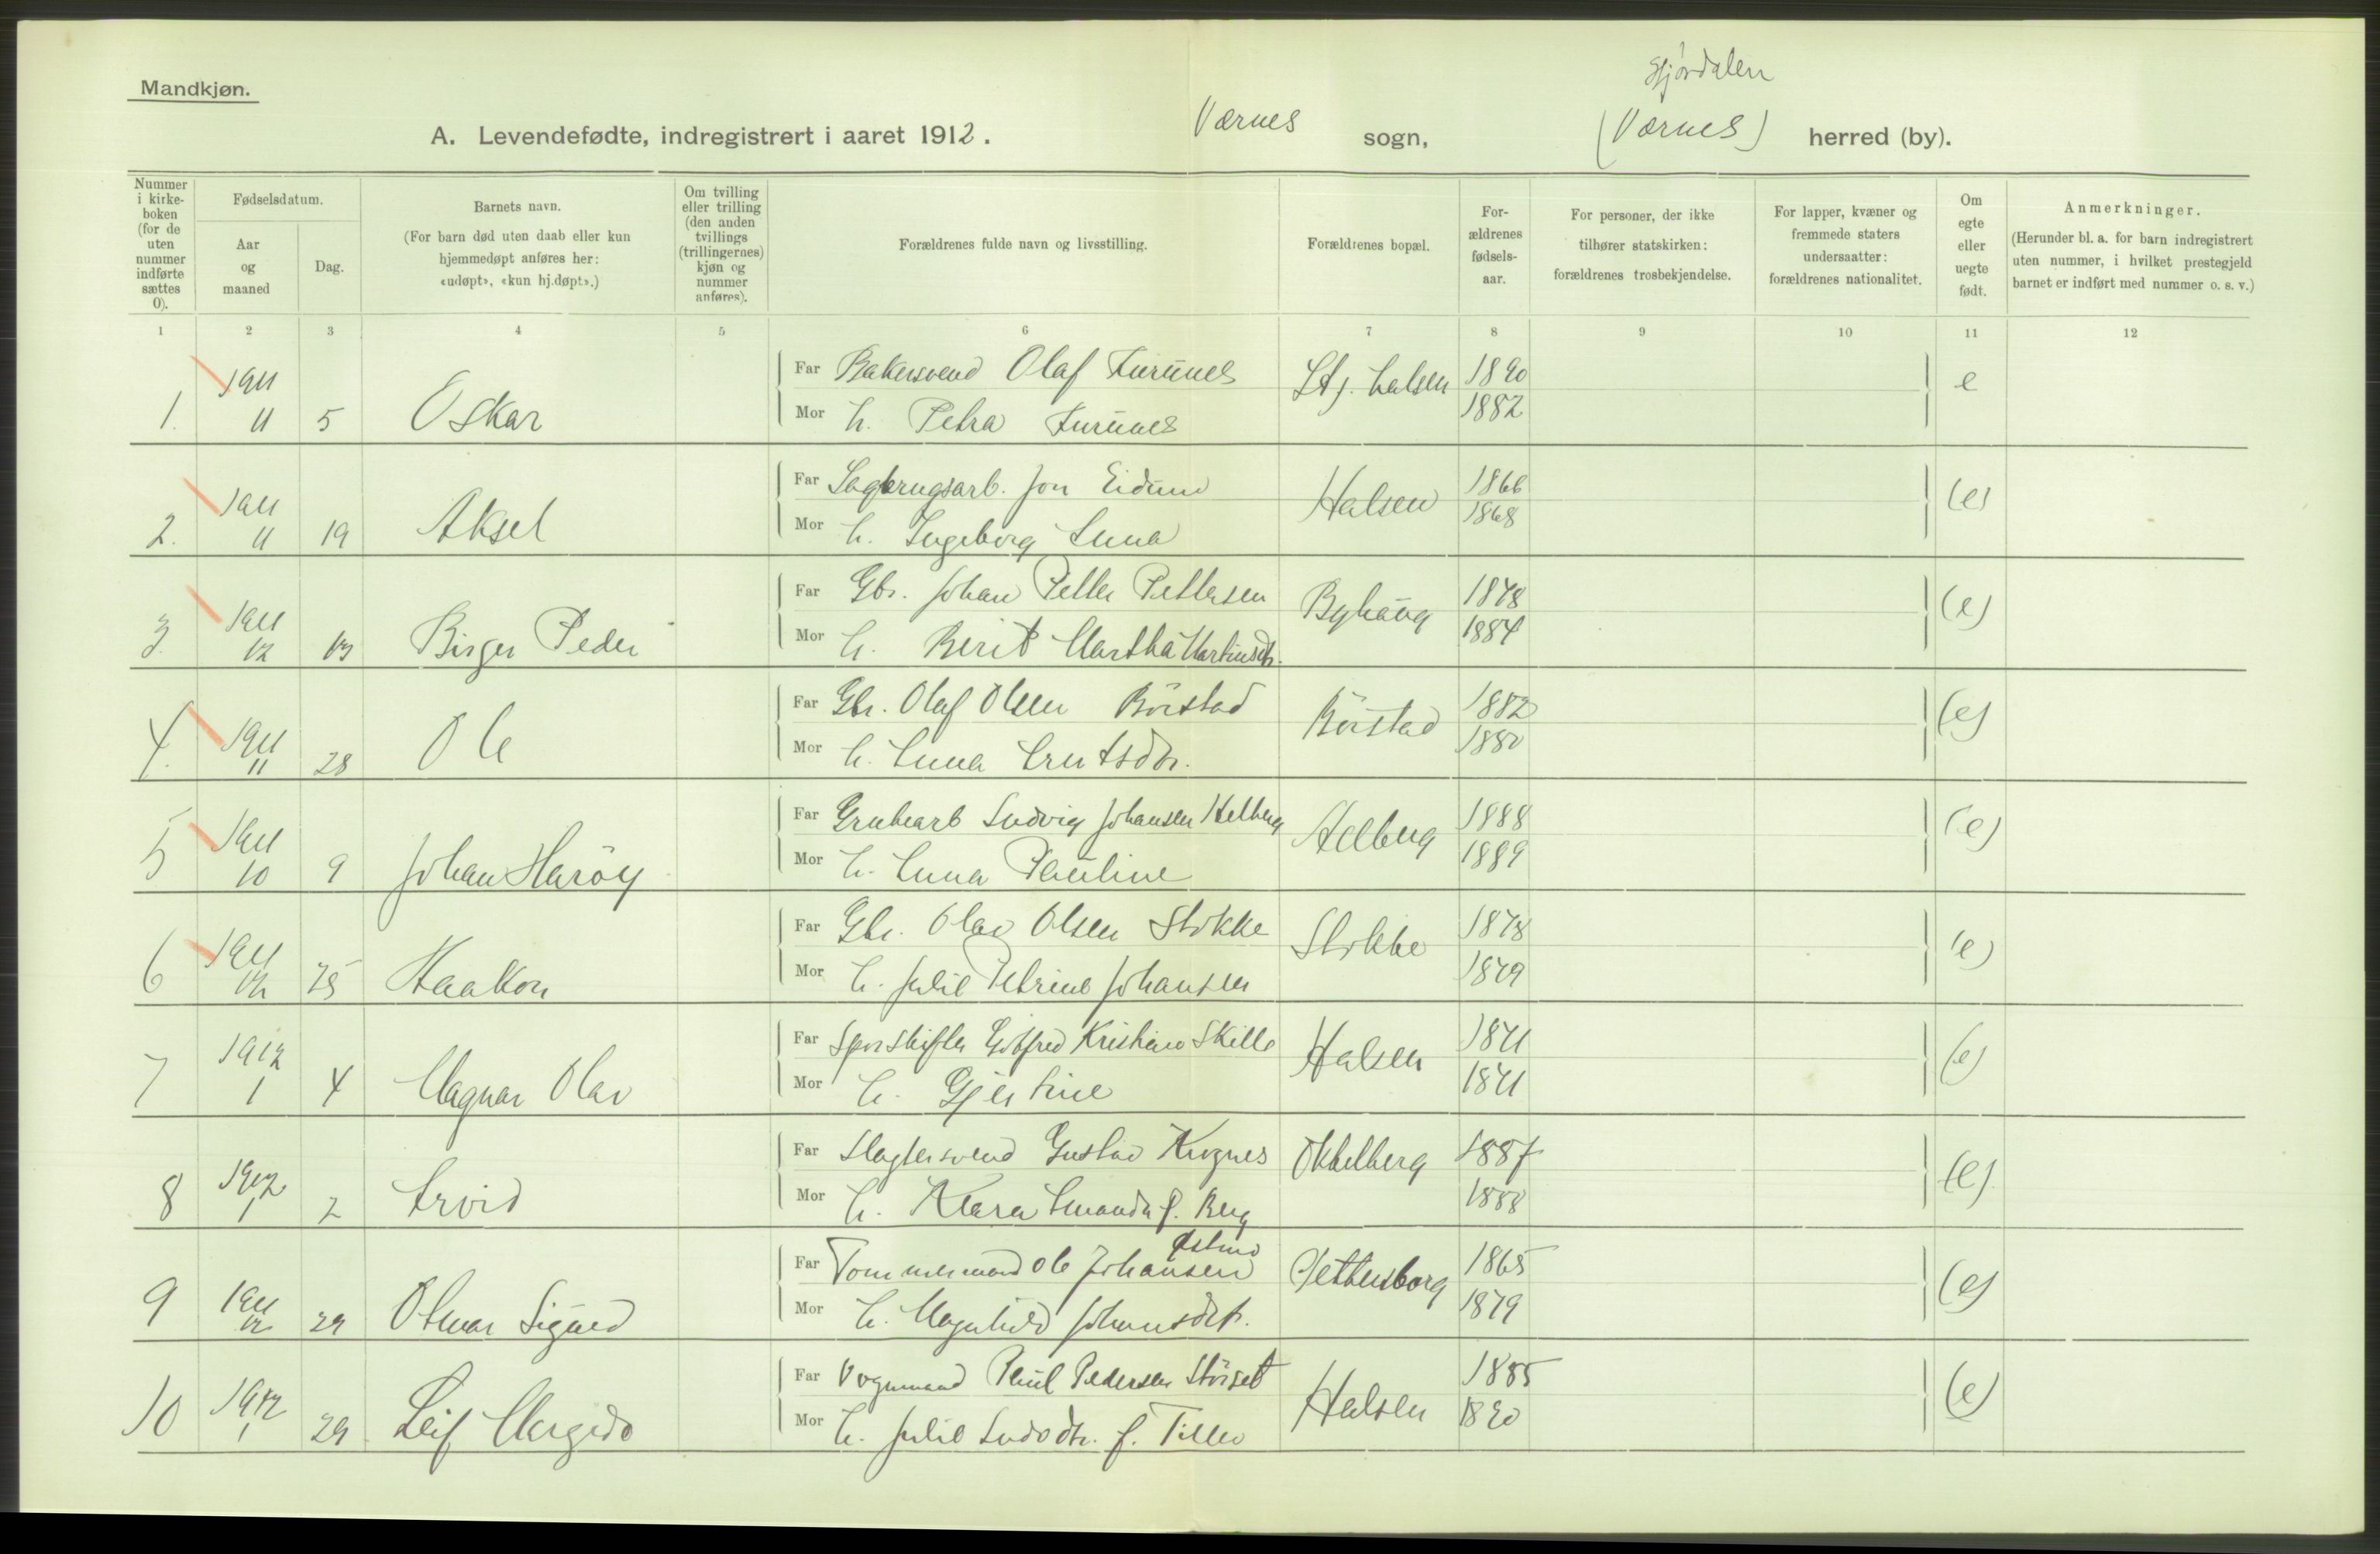 Mandkjøn.
Stjørdalen
A. Levendefødte, indregistrert i aaret 1912. Værnes sogn, (Værnes) herred (by).
Nummer i kirkeboken (for de uten nummer indførte sættes 0).
Fødselsdatum.
Aar og maaned
Dag.
Barnets navn.
(For barn død uten daab eller kun hjemmedøpt anføres her: «udøpt», «kun hj.døpt».)
Om tvilling eller trilling (den anden tvillings (trillingernes) kjøn og nummer anføres).
Forældrenes fulde navn og livsstilling.
Forældrenes bopæl.
Forældrenes fødselsaar.
For personer, der ikke tilhører statskirken: forældrenes trosbekjendelse.
For lapper, kvæner og fremmede staters undersaatter: forældrenes nationalitet.
Om egte eller uegte født.
Anmerkninger.
(Herunder bl. a. for barn indregistrert uten nummer, i hvilket prestegjeld barnet er indført med nummer o. s. v.)
1 2 3 4 5 6 7 8 9 10 11 12
1. 1911 11 5 Oskar
Far Bakersvend Olaf Furunes Stj. halsen 1890 e
Mor h. Petra Furunes 1882
2. 1911 11 19 Aksel
Far Sagbrugsarb. Jon Eidum Halsen 1866 (e)
Mor h. Ingeborg Anna 1868
3. 1911 12 13 Birger Peder
Far Gbr. Johan Petter Pettersen Byhaug 1878 (e)
Mor h. Berit Martha Martinsdtr. 1884
4. 1911 11 28 Ole
Far Gbr. Olaf Olsen Börstad Börstad 1882 (e)
Mor h. Anna 1880
5 1911 10 9 Johan Haröy
Far Grubearb Ludvig Johansen Helberg Helberg 1888 (e)
Mor h. Anna Pauline 1889
6 1911 12 25 Haakon
Far Gbr. Olav Olsen Stokke Stokke 1878 (e)
Mor h. Julie Petrine Johansen 1879
7 1912 1 4 Magnar Olav
Far Sporskifter Gotfred Kristian Skille Halsen 1871 (e)
Mor h. Gjertine 1871
8 1912 1 2 Arvid
Far Slagtersvend Gustav Okkelberg 1887 (e)
Mor h. Klara Amanda f. Berg 1888
9 1911 12 29 Olmar Sigurd
Far Tømmermand Ole Johansen Østmo Pettersborg 1865 (e)
Mor h. Magnhild Johansdtr. 1879
10 1912 1 29 Leif Margido
Far Vognmand Paul Pedersen Störset Halsen 1885 (e)
Mor h. Julie Ludvdtr. f. Tiller 1890